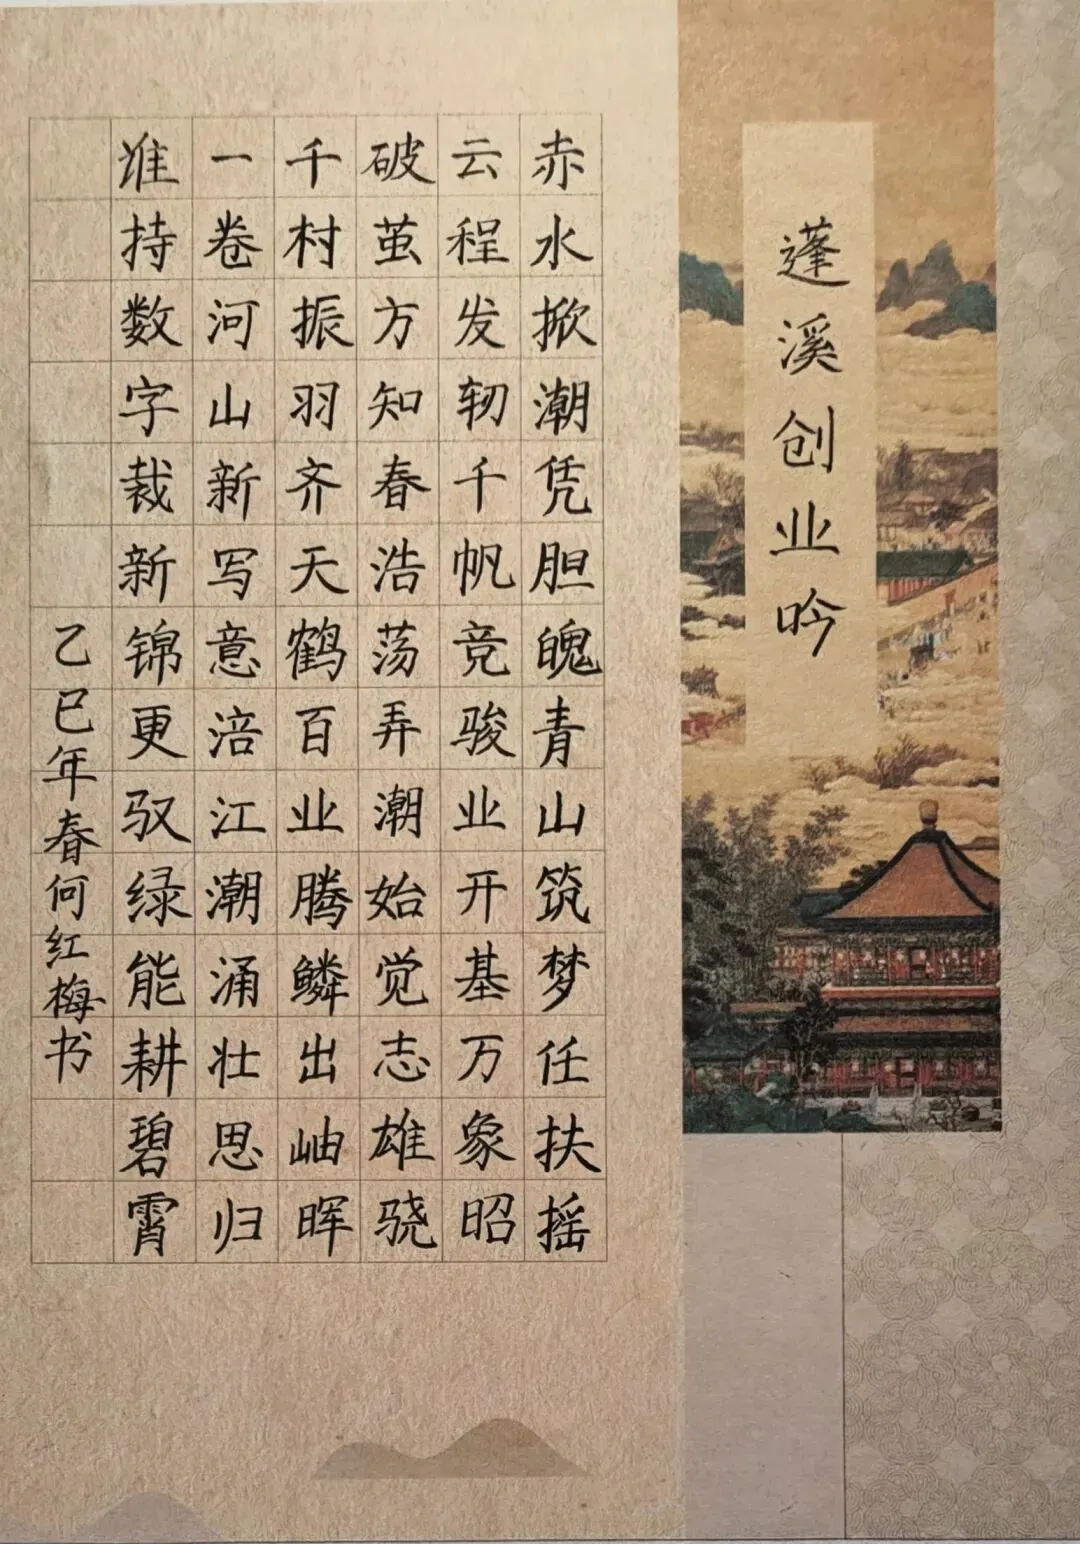 蓬溪创业吟
赤水掀潮凭胆魄青山筑梦任扶摇
云程发轫千帆竞骏业开基万象昭
破茧方知春浩荡弄潮始觉志雄骁
千村振羽齐天鹤百业腾鳞出岫晖
一卷河山新写意涪江潮涌壮思归
谁持数字裁新锦更驭绿能耕碧霄
乙巳年春何红梅书